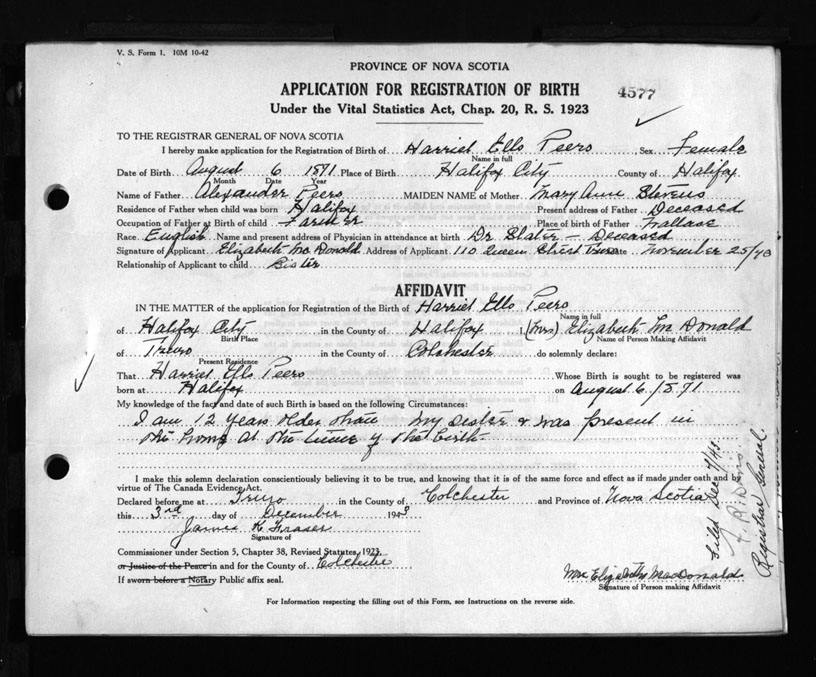 V. S. Form 1. 10M 10-42
PROVINCE OF NOVA SCOTIA
APPLICATION FOR REGISTRATION OF BIRTH
4577
Under the Vital Statistics Act, Chap. 20, R. S. 1923
TO THE REGISTRAR GENERAL OF NOVA SCOTIA
I hereby make application for the Registration of Birth of Harriet Ells Peers, Sex Female
Name in full
Date of Birth August 6 1871 Place of Birth Halifax City County of Halifax
Month Date Year
Name of Father Alexander Peers MAIDEN NAME of Mother Mary Ann Stevens
Residence of Father when child was born Halifax Present address of Father Deceased
Occupation of Father at Birth of child Farmer Place of birth of Father Wallace
Race English Name and present address of Physician in attendance at birth Dr Slater - Deceased
Signature of Applicant Elizabeth McDonald Address of Applicant 110 Queen Street Truro Date November 25/43
Relationship of Applicant to child Sister
AFFIDAVIT
IN THE MATTER of the application for Registration of the Birth of Harriet Ells Peers
Name in full
of Halifax City in the County of Halifax I, (Mrs) Elizabeth McDonald
Birth Place Name of Person Making Affidavit
of Truro in the County of Colchester do solemnly declare:
Present Residence
That Harriet Ells Peers Whose Birth is sought to be registered was
born at Halifax on August 6/1871
My knowledge of the fact and date of such Birth is based on the following Circumstances:
I am 12 years older than my sister & was present in
the home at the time of the birth
I make this solemn declaration conscientiously believing it to be true, and knowing that it is of the same force and effect as if made under oath and by
virtue of The Canada Evidence Act.
Declared before me at Truro in the County of Colchester and Province of Nova Scotia
this 3rd day of December 1943
James K Fraser
Signature of
Commissioner under Section 5, Chapter 38, Revised Statutes, 1923
or Justice of the Peace in and for the County of Colchester
If sworn before a Notary Public affix seal.
Mrs Elizabeth MacDonald
Signature of Person making Affidavit
For Information respecting the filling out of this Form, see Instructions on the reverse side.
Filed Dec 7/43
Registrar General.